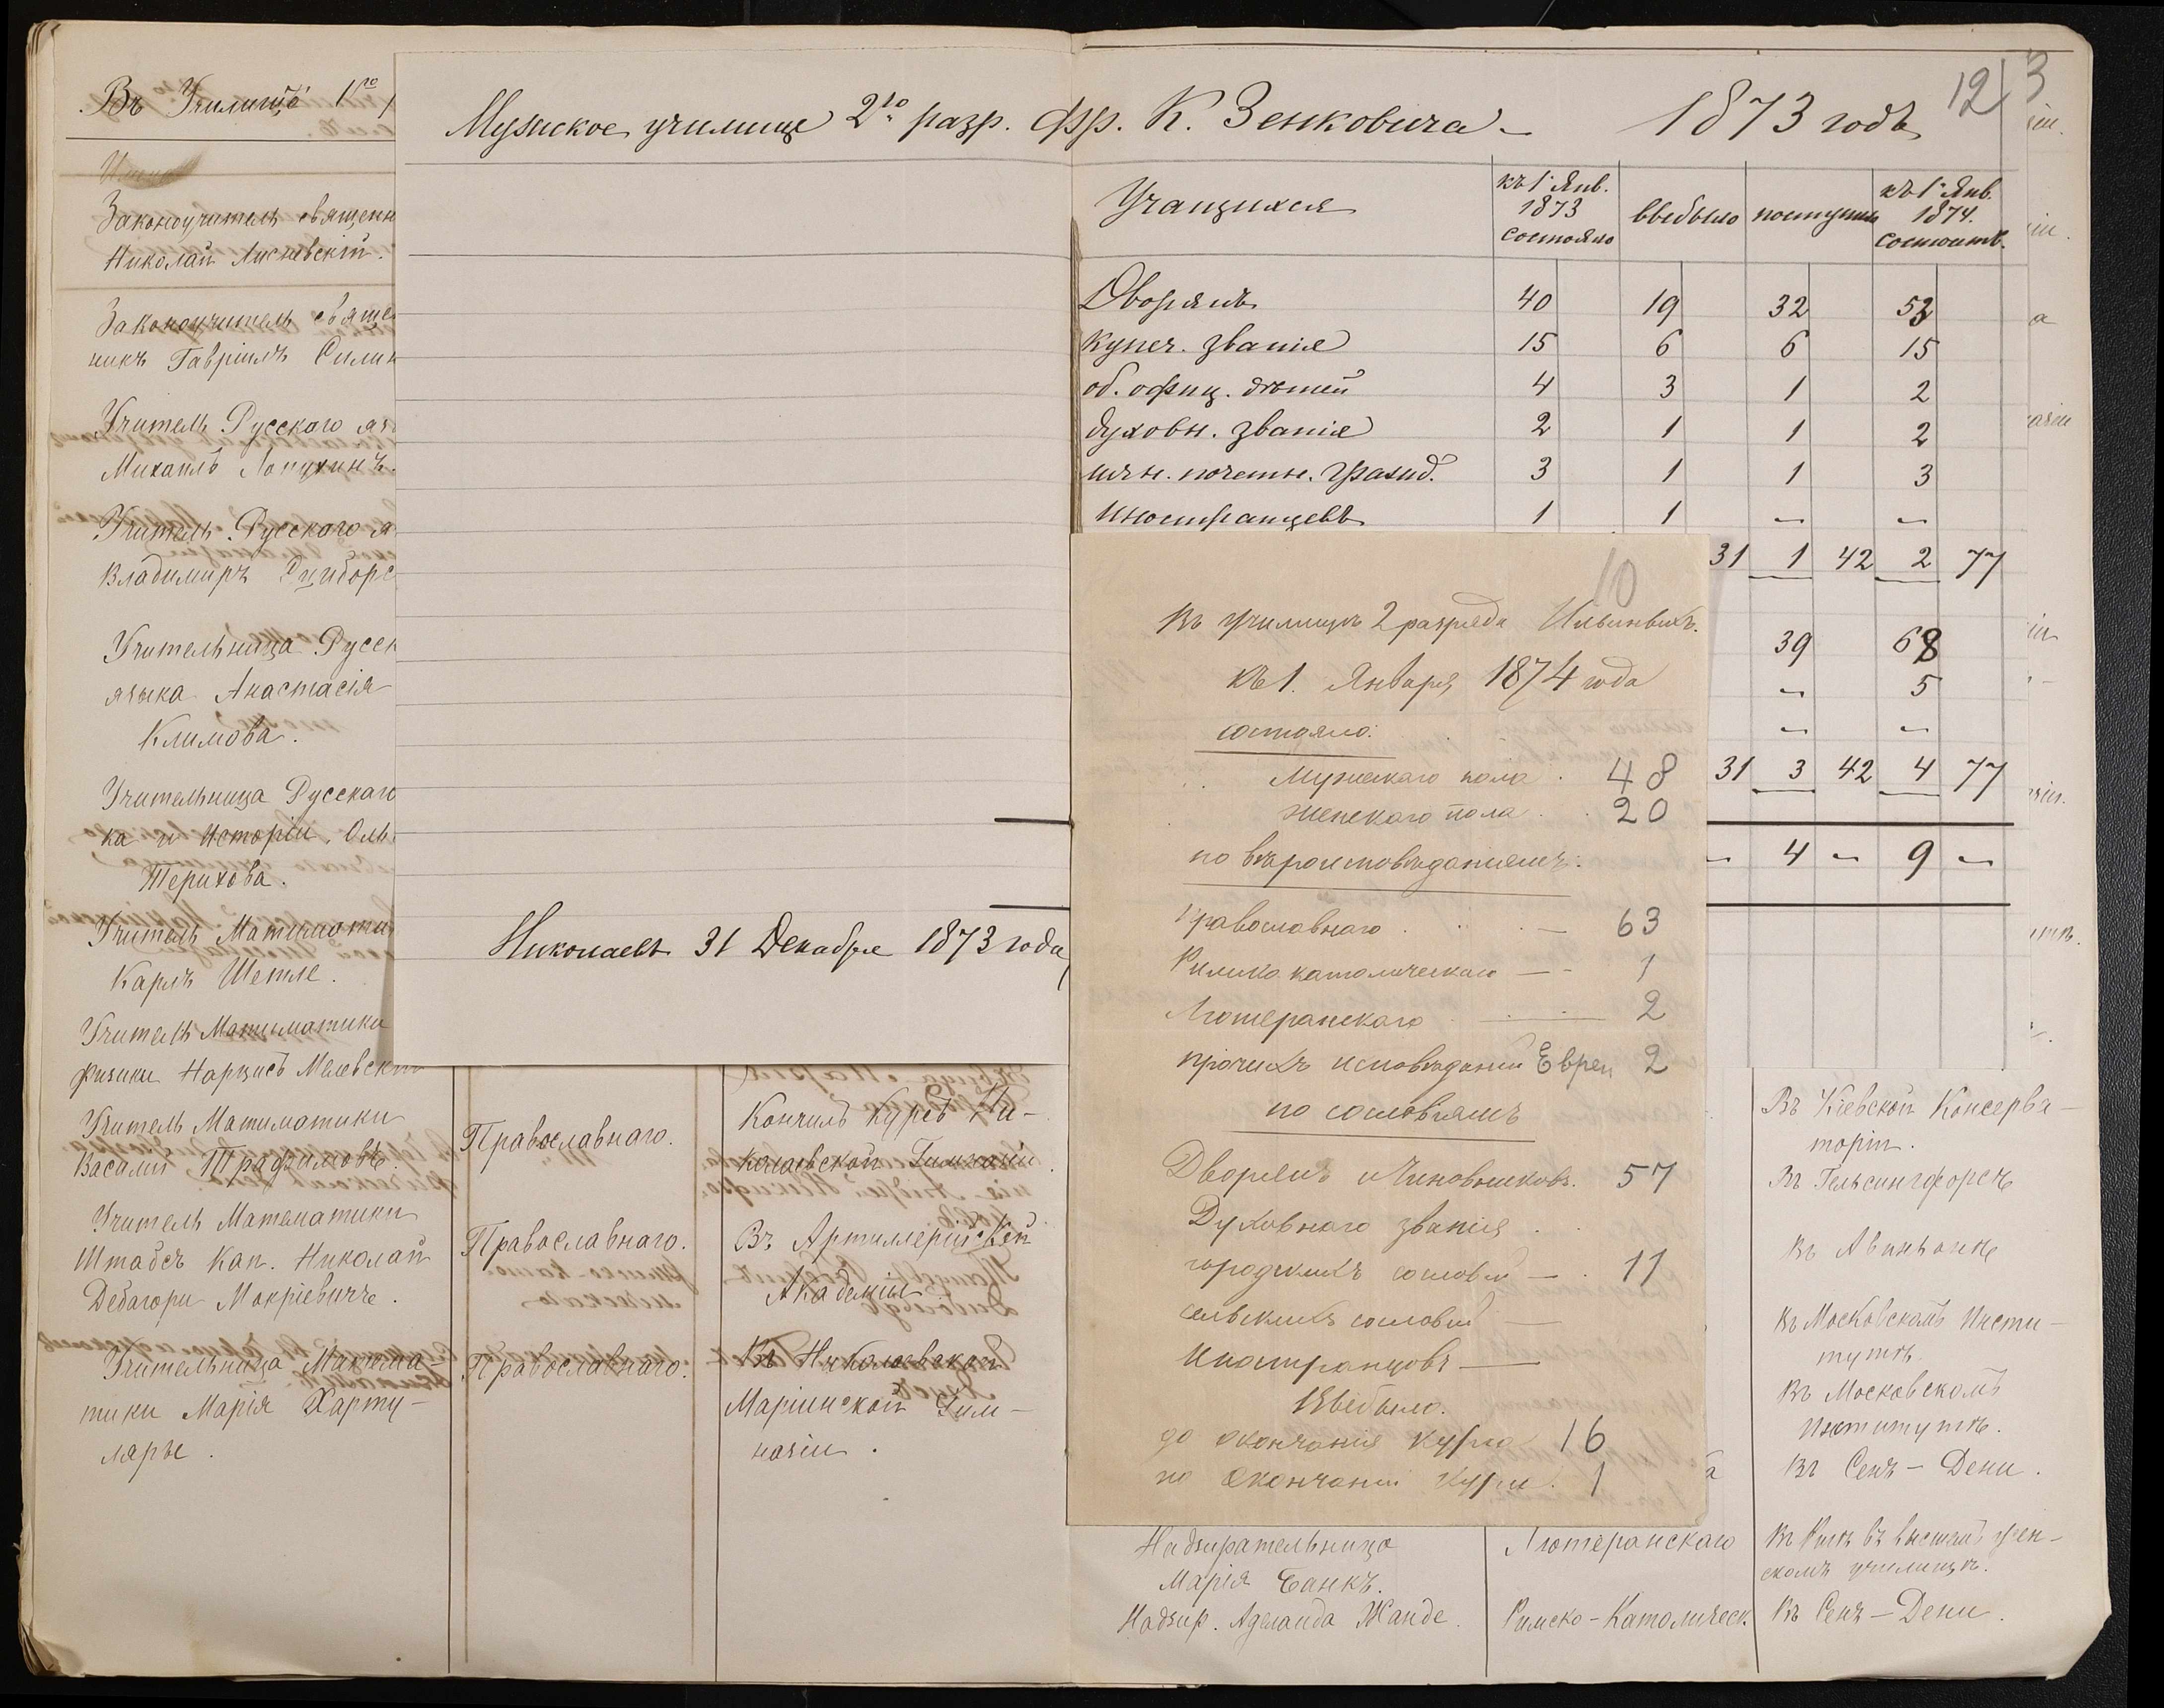 Въ Училищѣ 1го
Законоучитель священ
Николай Лисневскій.
Законоучитель свяще
никъ Гавріилъ Силин
Учитель Русского яз
Михаилъ Лопухинъ.
Учитель Русского я
Владимиръ Рциборс
Учительница Русск
языка Анастасія
Климова.
Учительница Русскаго
ка и Исторіи, Оль
Терихова.
Учитель Матимати
Карлъ Шетле.
Учитель Матиматики
физики Нарцисъ Малевскій
Учитель Матиматики
Василій Трафимовъ.
Православнаго.
Кончилъ курсъ Ни-
колаевской Гимназіи.
Учитель Математики
Штабсъ Кап. Николай
Дебагори Мокріевичъ.
Православнаго.
Въ Артиллерійской
Академіи
Учительница Матема-
тики Марія Харту-
ляры.
Православнаго.
Въ Николаевской
Маріинской Гим-
назіи.
Мужское училище 2го разр. фр. К. Зенковича — 1873 годъ
12 3
Учащихся
къ 1 Янв. 1873 состояло
выбыло
поступило
къ 1 Янв. 1874. состоитъ.
Дворянъ 40 19 32 53
купеч. званія 15 6 6 15
об. офиц. дѣтей 4 3 1 2
духовн. званія 2 1 1 2
личн. почетн. гражд. 3 1 1 3
иностранцевъ 1 1 — —
31 1 42 2 77
39 68
— 5
— —
31 3 42 4 77
— 4 — 9 —
Николаевъ 31 Декабря 1873 года
10
Въ училищѣ 2 разряда Ильиныхъ.
къ 1. Января 1874 года
состояло:
Мужескаго пола . 48
Женскаго пола . . 20
по вѣроисповѣданіямъ:
Православнаго . . — 63
Римско католическаго — - 1
Лютеранскаго — 2
прочихъ исповѣданій Евреи 2
по сословіямъ
Дворянъ и Чиновниковъ. 57
Духовнаго званія . .
городскихъ сословій — . 11
сельскихъ сословій —
Иностранцовъ —
Выбыло.
до окончанія курса 16
по окончаніи курса. 1
Въ Кіевской Консерва-
торіи.
Въ Гельсингфорсѣ
Въ Авиньонѣ
Въ Московскомъ Инсти-
тутѣ.
Въ Московскомъ
Институтѣ.
Въ Сенъ-Дени.
Надзирательница
Марія Банкъ.
Лютеранскаго
Въ Ригѣ въ высшемъ жен-
скомъ училищѣ.
Надзир. Аделаида Жанде.
Римско-Католическ.
Въ Сенъ-Дени.